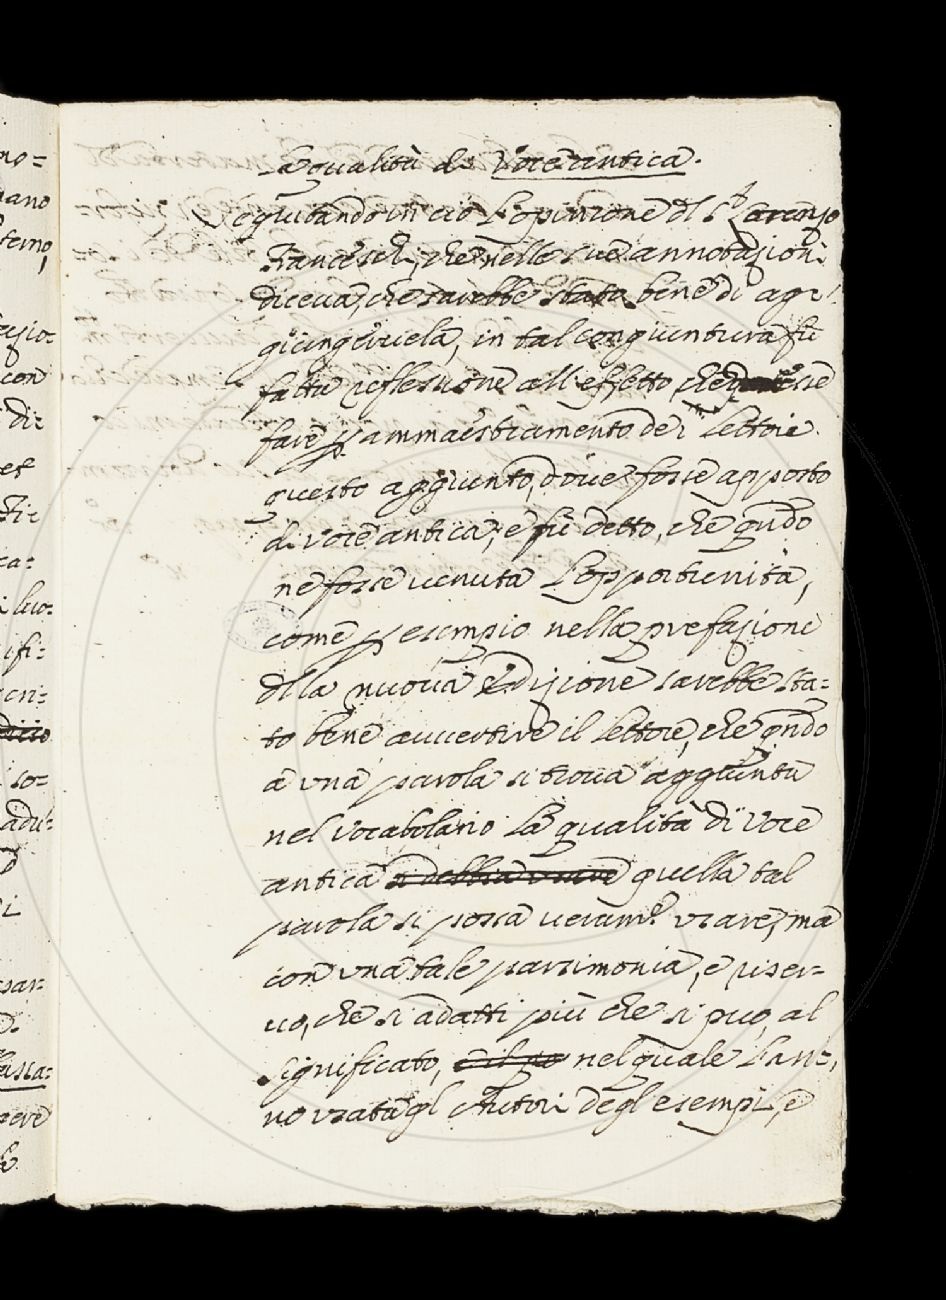 La qualità di Voce antica.
Seguitando in ciò l'opinione dl Sr. Lorenzo
Franceschi, che nelle sue annotazioni
diceva, che sarebbe stato bene di agi
giungervela, in tal congiuntura fù
fatta reflessione all'effetto, che
fare p ammaestramento dei lettore
questo aggiunto, dove fosse apposto
di voce antica, e fù detto, che qndo
ne fosse venuta l'opportunità,
come p esempio nella prefazione
dlla nuova Edizione sarebbe sta=
to bene avvertire il lettore, che qndo
à una parola si trova aggiunta
nel vocabolario la qualità di voce
antica si debbia usare quella tal
parola si possa veramte. usare, mà
con una tale parsimonia, e riser=
vo, che si adatti più che si può, al
significato, nel quale l'an=
no usata gl'Autori degl'esempi, e
no=
mano
con
di=
ca=
ifi=
cri=
so=
sar=